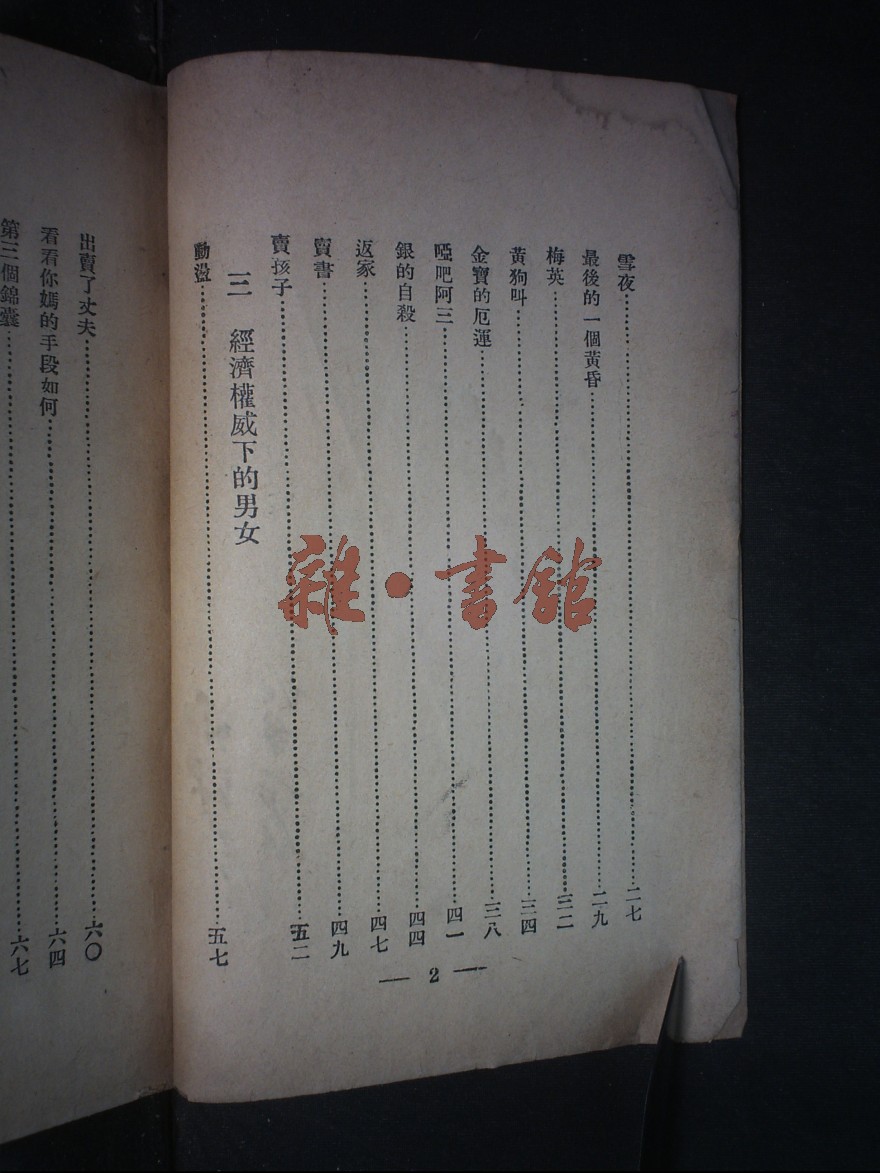 雪夜⋯⋯二七
最後的一個黃昏⋯⋯二九
梅英⋯⋯三二
黃狗叫⋯⋯三四
金寶的厄運⋯⋯三八
啞吧阿三⋯⋯四一
銀的自殺⋯⋯四四
返家⋯⋯四七
賣書⋯⋯四九
賣孩子⋯⋯五二
三 經濟權威下的男女
動盪⋯⋯五七
— 2 —
出賣了丈夫⋯⋯六〇
看看你媽的手段如何⋯⋯六四
第三個錦囊⋯⋯六七
雜·書館